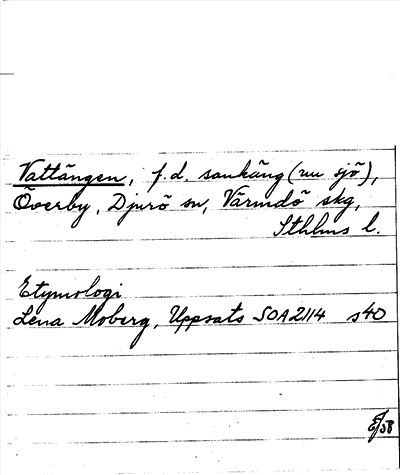 Vattängen, f.d. sankäng (nu sjö),
Överby, Djurö sn, Värmdö skg,
Sthlms l.
Etymologi
Lena Moberg, Uppsats SOA 2114 s40